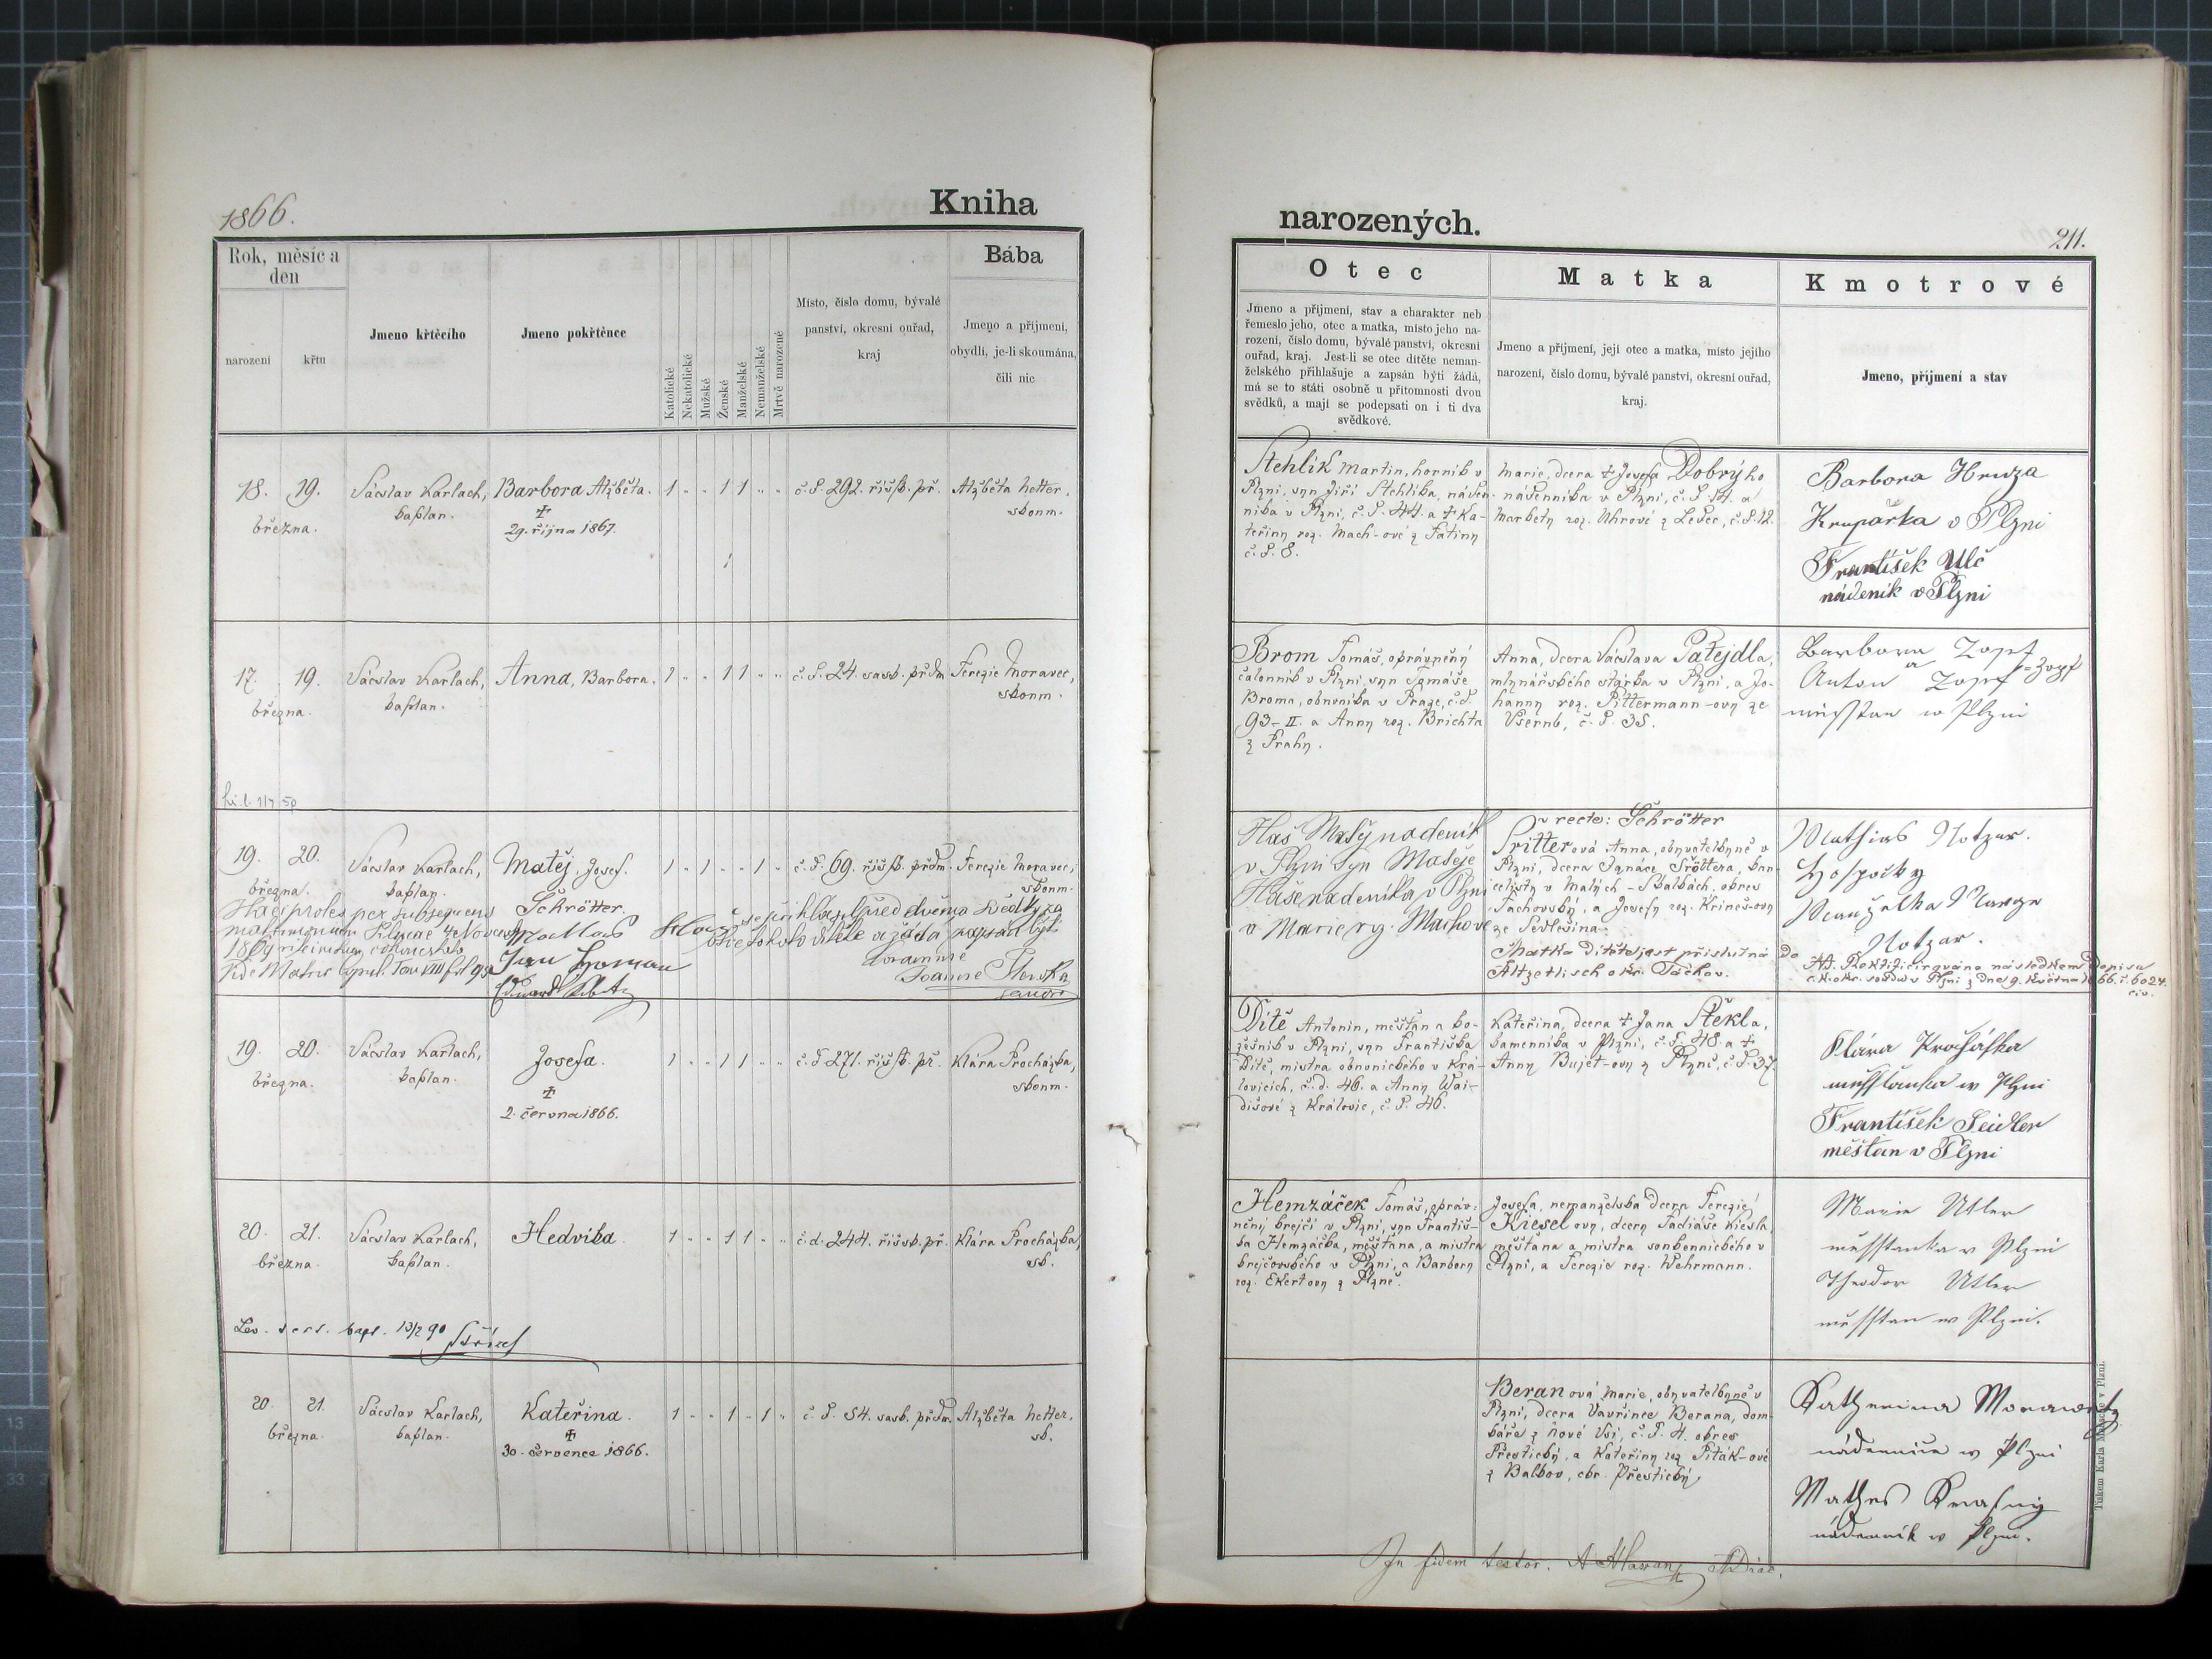 1866.
Kniha
narozených.
211.
Rok, měsíc a
den
narození
křtu
Jmeno křtěcího
Jmeno pokřtěnce
Katolické
Nekatolické
Mužské
Ženské
Manželské
Nemanželské
Mrtvě narozené
Místo, číslo domu, bývalé
panství, okresní ouřad,
kraj
Bába
Jmeno a příjmení,
obydlí, je-li skoumána,
čili nic
Otec
Jmeno a příjmení, stav a charakter neb
řemeslo jeho, otec a matka, místo jeho na-
rození, číslo domu, bývalé panství, okresní
ouřad, kraj. Jest-li se otec dítěte neman-
želského přihlašuje a zapsán býti žádá,
má se to státi osobně u přítomnosti dvou
svědků, a mají se podepsati on i ti dva
svědkové.
Matka
Jmeno a příjmení, její otec a matka, místo jejího
narození, číslo domu, bývalé panství, okresní ouřad,
kraj.
Kmotrové
Jmeno, příjmení a stav
18. 19.
března.
Václav Karlach,
kaplan.
Barbora Alžběta.
29. října 1867.
1 1 1
č. P. 292. říšsk. př.
Alžběta Netter,
skoum.
Stehlík Martin, horník v
Plzni, syn Jiří Stehlíka, náden-
níka v Plzni, č. P. 44. a † Ka-
teřiny roz. Mach-ové z Tatiny
č. P. 8.
Marie, dcera † Josefa Dobrýho
nádenníka v Plzni, č. P. 14. a
Markety roz. Uhrové z Ledec, č. P. 12.
Barbora Hruza
Krupařka v Plzni
František Ulč
nádeník v Plzni
17. 19.
března.
Václav Karlach,
kaplan.
Anna, Barbora.
1 1 1
č. P. 24. sask. předm.
Terezie Moravec,
skoum.
Brom Tomáš, oprávněný
čalouník v Plzni, syn Tomáše
Broma, obuvníka v Praze, č. d.
93-II. a Anny roz. Brichta
z Prahy.
Anna, dcera Václava Patejdla,
mlynářského stárka v Plzni, a Jo-
hanny roz. Pittermann-ovy ze
Všerub, č. P. 38.
Barbora Zopf
a
Anton Zopf = Zopf
měsstan w Plzni
19. 20.
března.
Václav Karlach,
kaplan.
Matěj, Josef.
Schrötter.
1 1 1
č. P. 69. říšsk. předm.
Terezie Moravec,
skoum.
Haec proles per subsequens
matrimonium
1869
se přihlásil před dvěma svědky za
otce tohoto dítěte a žádá zapsán býti
Coram me
Haš Matěj nadeník
v Plzni syn Matěje
Haše nadeníka v Plzni
a Marie rz. Machové
recte: Schrötter
Sritterová Anna, obyvatelkyně v
Plzni, dcera Ignáce Sröttera, kan-
celisty v Malých-Skalkách, okres
Tachovský, a Josefy roz. Krineš-ovy
ze Sedlešina.
Matka dítěte jest příslušná do
Altzetlisch okr. Tachov.
Mathias Notzar.
Hospocky
Manzelka Marya
Notzar.
NB. Rektificirováno následkem dopisu
c. k. okr. soudu v Plzni z dne 9. května 1866. č. 6024.
civ.
19. 20.
března.
Václav Karlach,
kaplan.
Josefa.
2. června 1866.
1 1 1
č. d. 271. říšsk. př.
Klára Procházka,
skoum.
Dítě Antonín, měšťan a ko-
žešník v Plzni, syn Františka
Dítě, mistra obuvnického v Krá-
lovicích, č. d. 46. a Anny Wai-
dišové z Královic, č. P. 46.
Kateřina, dcera † Jana Štěkla,
kamenníka v Plzni, č. P. 48. a †
Anny Bujet-ovy z Plzně, č. P. 37.
Klára Krohaska
měsstanka w Plzni
František Seidler
měštan v Plzni
20. 21.
března
Václav Karlach,
kaplan.
Hedvika.
1 1 1
č. d. 244. říšsk. př.
Klára Procházka,
sk.
Hemzáček Tomáš, opráv-
něný krejčí v Plzni, syn Františ-
ka Hemzáčka, měšťana, a mistra
krejčovského v Plzni, a Barbory
roz. Ekert ovy z Plzně.
Josefa, nemanželská dcera Terezie
Kiesel ovy, dcery Tadiáše Kiesla,
měšťana a mistra soukennického v
Plzni, a Terezie roz. Wehrmann.
Marie Utler
měsstanka v Plzni
Theodor Utler
měsstan w Plzni.
20. 21.
března.
Václav Karlach,
kaplan.
Kateřina.
30. července 1866.
1 1 1
č. P. 54. sask. předm.
Alžběta Netter,
sk.
Beranová Marie, obyvatelkyně v
Plzni, dcera Vavřince Berana, dom-
káře z Nové Vsi, č. P. 4. okres
Přestický, a Kateřiny roz. Piták-ové
z Balkov, okr. Přestický.
Katherina Morawetz
nádennice w Plzni
Mathes Krasny
nádenník w Plzni.
In fidem testor.
Tiskem Karla v Plzni.